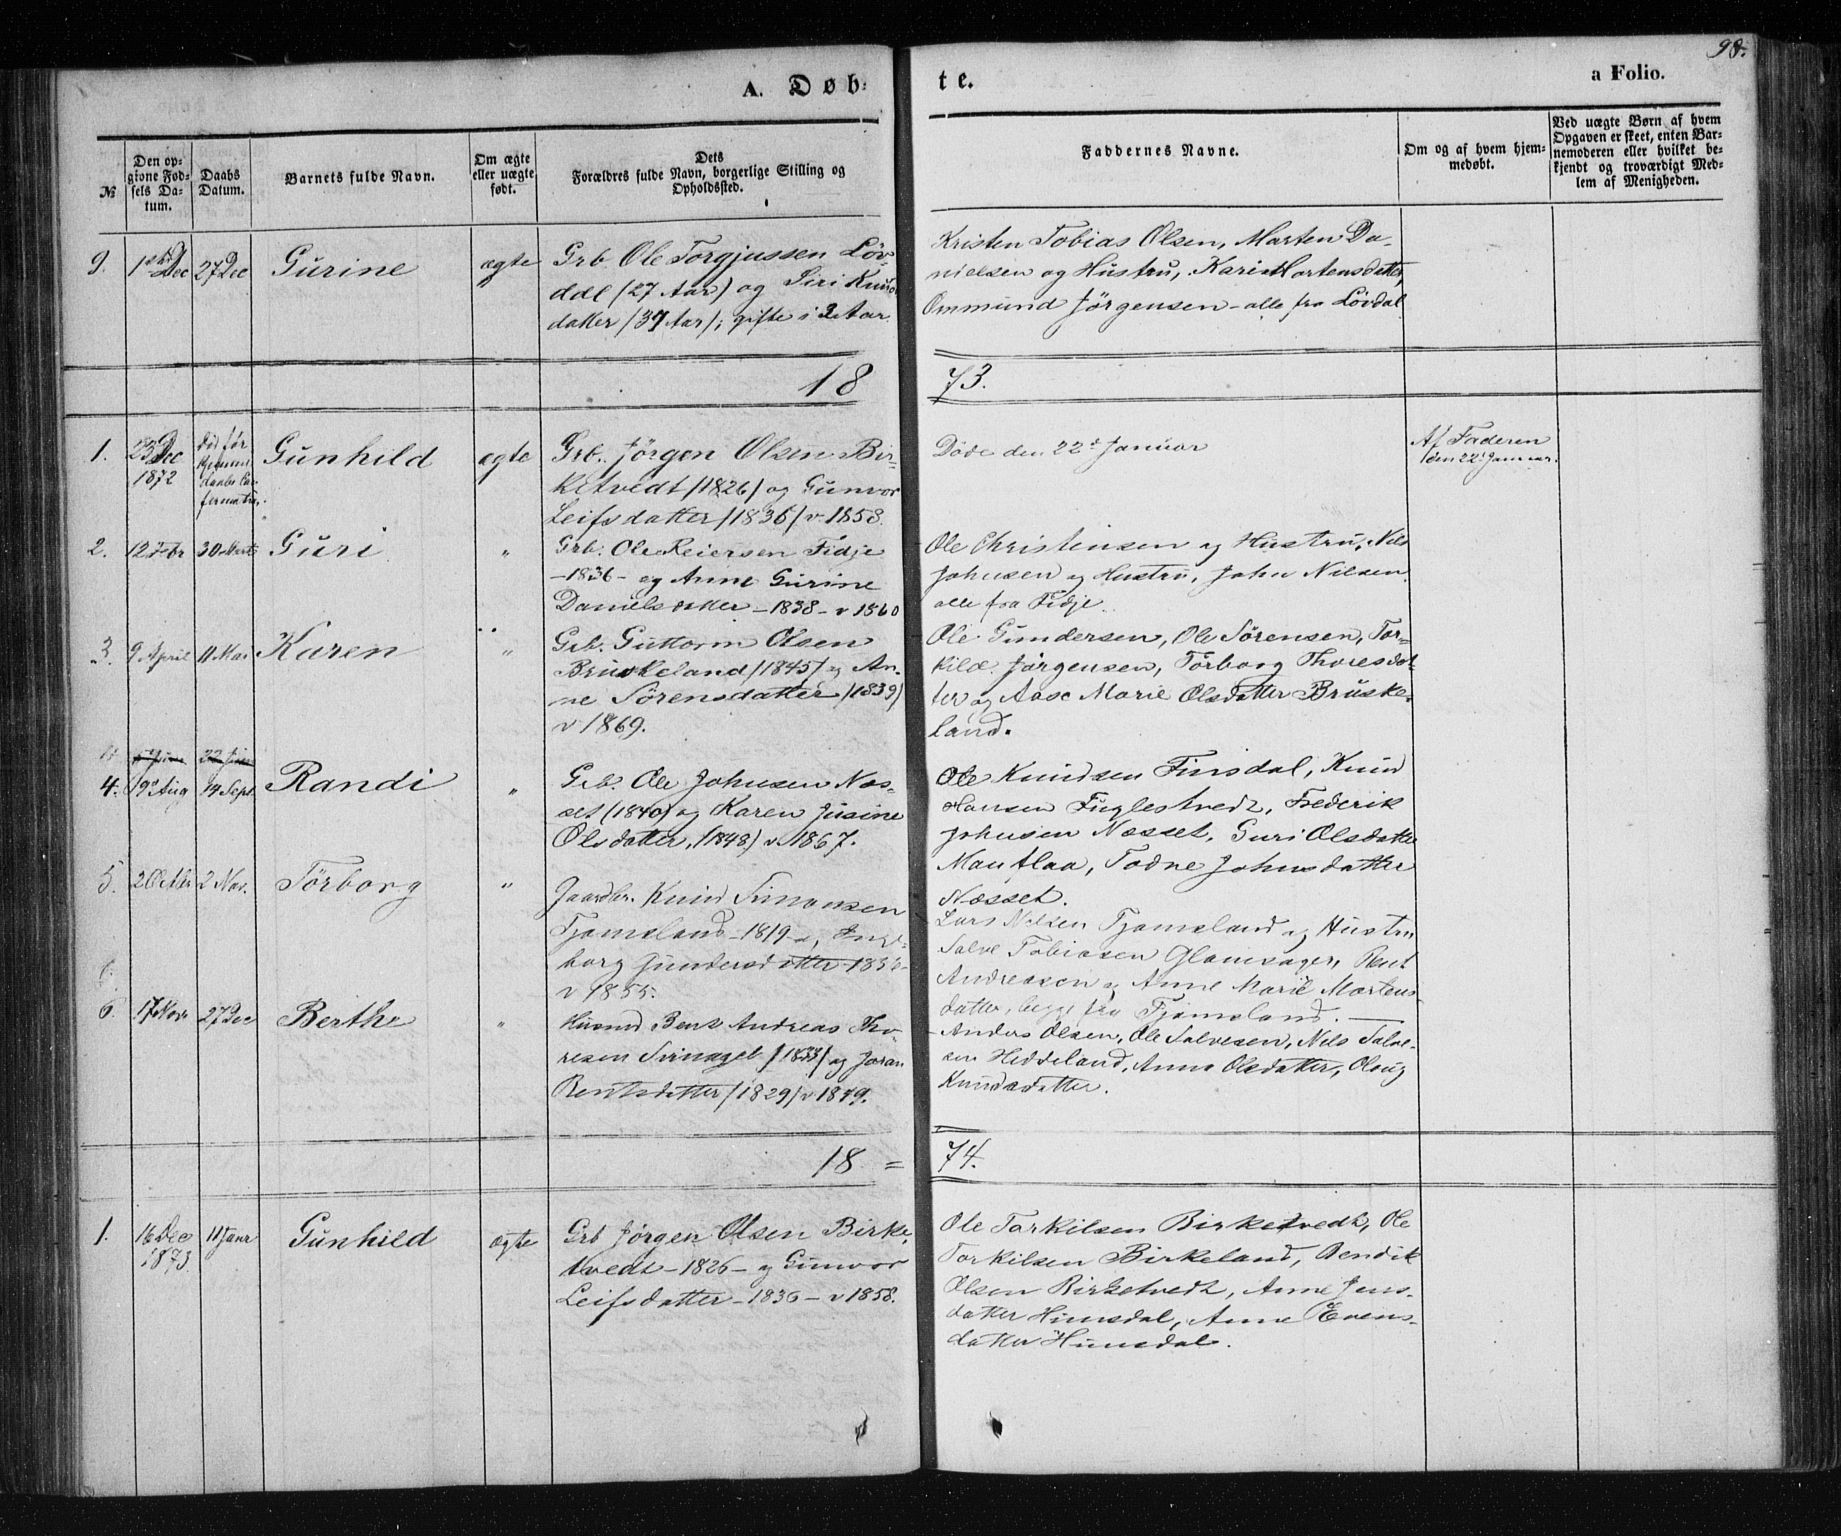 98.
A. Døb-
te.
a Folio.
№
Den op-
givne Fød-
sels Da-
tum.
Daabs
Datum.
Barnets fulde Navn.
Om ægte
eller uægte
født.
Dets
Forældres fulde Navn, borgerlige Stilling og
Opholdssted.
Faddernes Navne.
Om og af hvem hjem-
medøbt.
Ved uægte Børn af hvem
Opgaven er skeet, enten Bar-
nemoderen eller hvilket be-
kjendt og troværdigt Med-
lem af Menigheden.
9.
1ste Dec
27 Dec
Gurine
ægte
Grb. Ole Torgjussen Löv-
dal (27 Aar) og Siri Knuds
datter (37 Aar); gifte i 2 Aar.
Kristen Tobias Olsen, Morten Da-
nielsen og Hustru, Kari Mortensdatter,
Ommund Jörgensen – alle fra Lövdal
18
73.
1.
23 Dec
1872
död før
Gunhild
ægte
Grb. Jörgen Olsen Bir-
ketvedt (1826) og Gunvor
Leifsdatter (1836) v. 1858.
Döde den 22d Januar
Af Faderen
den 22 Januar.
2.
12 Febr
30 Marts
Guri
"
Grb. Ole Reiersen Fidje
–1836– og Anne Gurine
Danielsdatter –1838– v 1860
Ole Christensen og Hustru, Nils
Johnsen og Hustru, John Nilsen
alle fra Fidje.
3.
9 April
11 Mai
Karen
"
Grb. Guttorm Olsen
Bruskeland (1845) og An-
ne Sörensdatter (1839)
v 1869.
Ole Gundersen, Ole Sörensen, Tor-
kild Jörgensen, Törborg Thoresdat-
ter og Aase Marie Olsdatter Bruske-
land.
4.
19 Aug
14 Sept
Randi
"
Grb. Ole Johnsen Næs-
set (1840) og Karen Jusine
Olsdatter, (1848) v. 1867.
Ole Knudsen Finsdal, Knud
Hansen Fuglestvedt, Frederik
Johnsen Næsset, Guri Olsdatter
Mauflaa, Todne Johnsdatter
Næsset.
5.
2 Octbr
2 Nov.
Törborg
"
Gaardbr. Knud Simonsen
Tjomsland –1819– og Inge-
borg Gundersdatter –1836–
v 1855.
Lars Nilsen Tjomsland og Hustru
Salve Tobiasen Glomsager, Bent
Andreasen og Anne Marie Mortens-
datter, begge fra Tjomsland. —
6.
17 Nov
27 Dec
Berthe
"
Husmd Bent Andreas Tho-
resen (1833) og Joran
Bentsdatter (1829) v 1849.
Anders Olsen, Ole Salvesen, Nils Salve-
sen Heddeland, Anne Olsdatter, Oloug
Knudsdatter.
18 =
74.
1.
16 Dec
1873
11 Janr
Gunhild
ægte
Grb Jörgen Olsen Birke-
tvedt –1826– og Gunvor
Leifsdatter –1836– v 1858.
Ole Torkilsen Birketvedt, Ole
Torkilsen Birkeland, Bendik
Olsen Birketvedt, Anne Jens-
datter Hunsdal, Anne Evens-
datter Hunsdal.